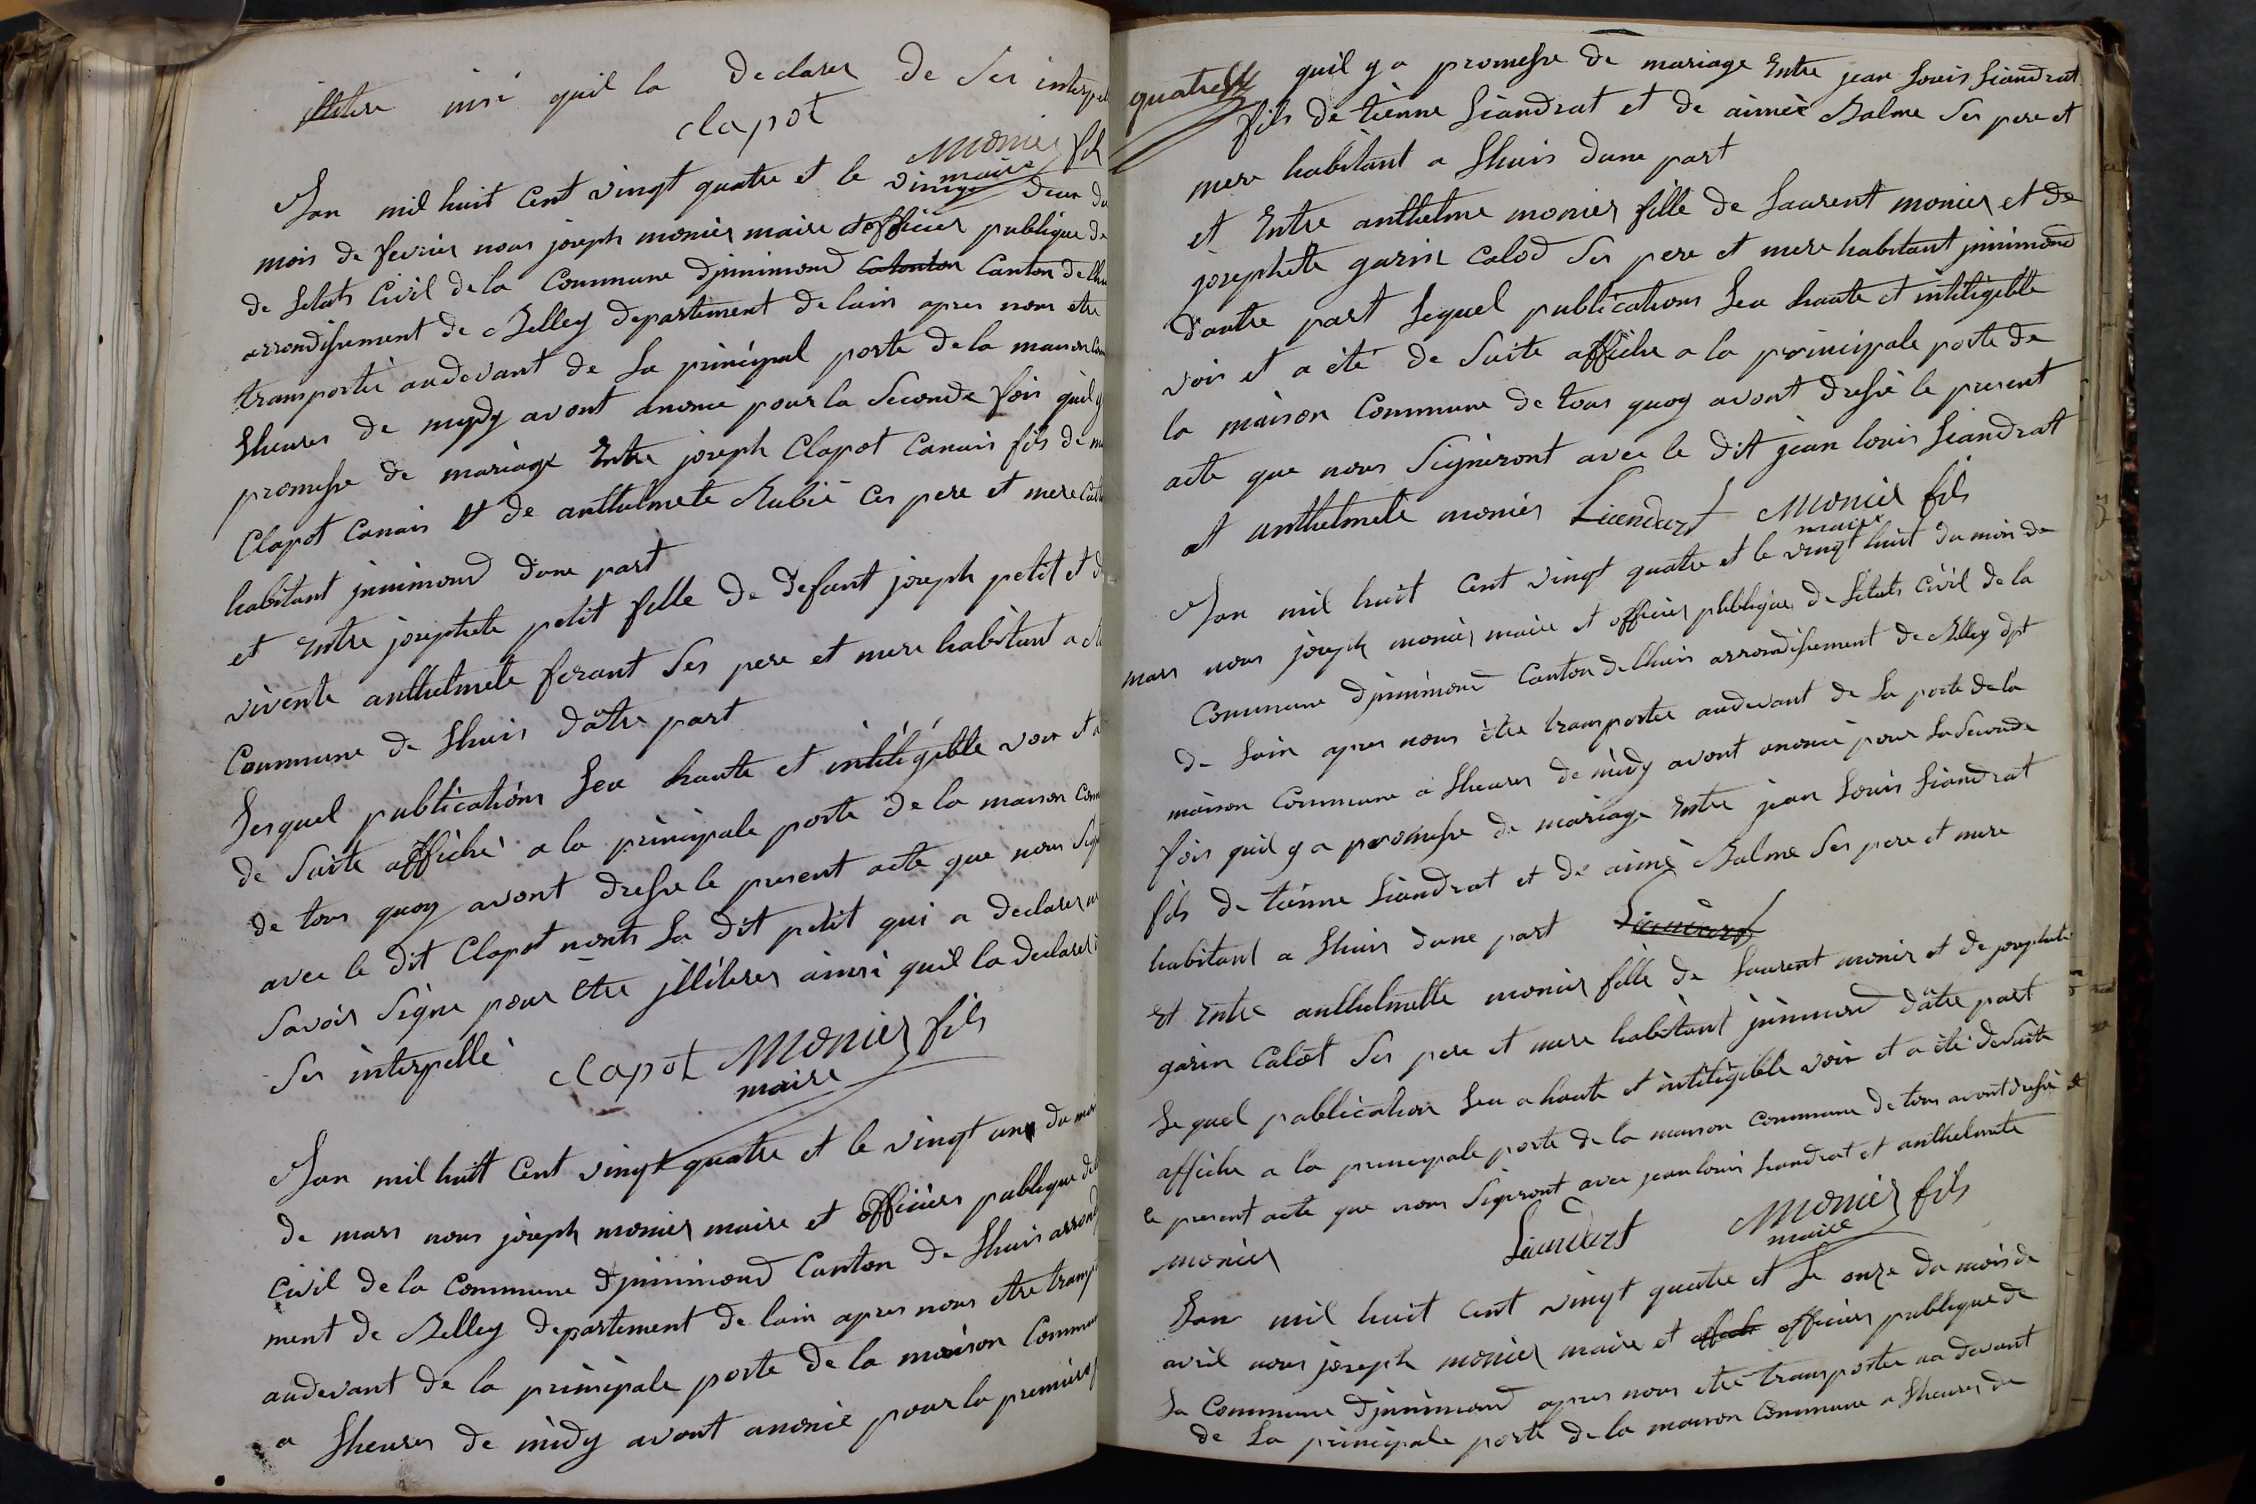 illitere insi quil la declarer de ses interpel
clapot monier fils
maire
Lan mil huit Cent vingt quatre et le vingt deux du
mois de fevrier nous joseph monier maire et officier publique de
de Letats Civil de la Commune djnnimond Canton Canton de lhuis
arrondissement de Belley departement de lain apres nous etre
transportée audevant de La principal porte de la maison Com
Lheures de mydy avont anoncé pour la Seconde fois quil y
promesse de mariage Entre joseph Clapot Canais fils de
Clapot Canais Et de anthelmete Rubié Ces pere et mere
habitant jnnimond dune part
et Entre josephete petit fille de defunt joseph petit et d
vivente anthelmete ferant Ses pere et mere habitant a
Commune de Lhuis dâtre part
Lesquel publications Leu haute et intèlégeble voix et a
de Suite affiché a la principale porte de la maison Com
de tous quoy avont dressé le present acte que nous Sign
avec le dit Clapot nonts La dit petit qui a declarer
Savoir Signe pour etre jlliterer ainsi quil la declarer
Ses interpellé clapot Monier fils
maire
Lan mil huit Cent vingt quatre et le vingt une du moi
de mars nous joseph monier maire et officier publique de
Civil de la Commune djnnimond Canton de Lhuis arrondi
ment de Belley departement de lain apres nous etre transp
audevant de la principale porte de la maison Commun
a Lheures de midy avont anoncé pour la premiere f
quatre
quil y a promesse de mariage Entre jean Louis Liandrat
fils de tiènne Liandrat et de aimée Balme Ses pere et
mere habitant a Lhuis dune part
et Entre anthelme monier fille de Laurent monier et de
josephete garin Calod Ses pere et mere habitant jnnimond
dautre part Lequel publications Leu haute et intiligeble
voix et a été de Suite affiche a la principale porte de
la maison Commune de tous quoy avont dressé le present
acte que nous Signeront avec le dit jean louis Liandrat
et anthelmete monier Liandart Monier fils
maire
Lan mil huit Cent vingt quatre et le vingt huit du moi de
mars nous joseph monier maire et officier publique de Letats Civil de la
Commune djnnimond Canton de lhuis arrondissement de Belley dpt
de Lain apres nous être transportée audevant de La porte de la
maison Commune a Lheures de midy avont anoncé pour La Seconde
fois quil y a promesse de mariage Entre jean Louis Liandrat
fils de tiènne Liandrat et de aimé Balme Ses pere et mere
habitant a Lhuis dune part Liandart
et Entre anthelmette monier fille de Laurent monier et de josephete
garin Calôt Ses pere et mere habitant jnnimond dâtre part
Lequel publication Leu a haute et intiligeble voix et a été de Suite
affiche a la principale porte de la maison Commune de tous avont dressé
le present acte que nous Signeront avec jean louis Liandrat et anthelmete
monier Liandart Monier fils
maire
Lan mil huit Cent vingt quatre et Le onze du mois de
avril nous joseph monier maire et officier publique de
La Commune djnnimond apres nous etre transportée au devant
de La principale porte de la maison Commune a Lheures de